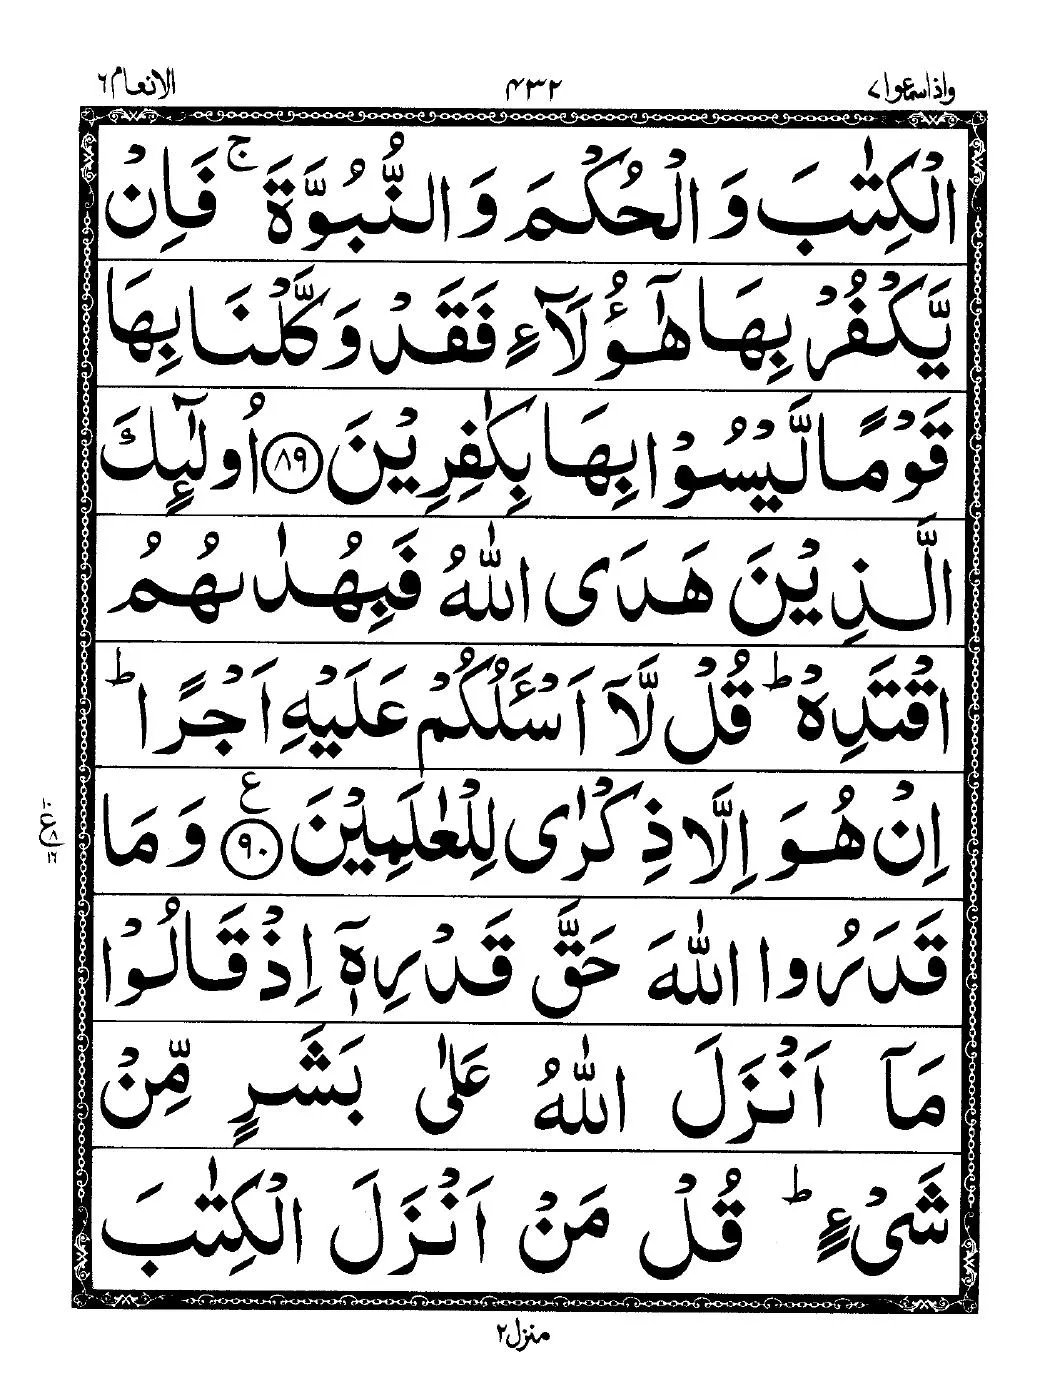 واذاسمعوا۷ ۴۳۲ الانعام۶
الْكِتٰبَ وَ الْحُكْمَ وَ النُّبُوَّةَ ۚ فَاِنْ
يَّكْفُرْ بِهَا هٰۤؤُلَآءِ فَقَدْ وَكَّلْنَا بِهَا
قَوْمًا لَّيْسُوْا بِهَا بِكٰفِرِيْنَ ﴿۸۹﴾ اُولٰٓئِكَ
الَّذِيْنَ هَدَى اللّٰهُ فَبِهُدٰىهُمُ
اقْتَدِهْ ؕ قُلْ لَّاۤ اَسْـَٔلُكُمْ عَلَيْهِ اَجْرًا ؕ
اِنْ هُوَ اِلَّا ذِكْرٰى لِلْعٰلَمِيْنَ ﴿۹۰﴾ ع وَ مَا
۱۰ ع ۸ ۱۶
قَدَرُوا اللّٰهَ حَقَّ قَدْرِهٖۤ اِذْ قَالُوْا
مَاۤ اَنْزَلَ اللّٰهُ عَلٰى بَشَرٍ مِّنْ
شَيْءٍ ؕ قُلْ مَنْ اَنْزَلَ الْكِتٰبَ
منزل۲